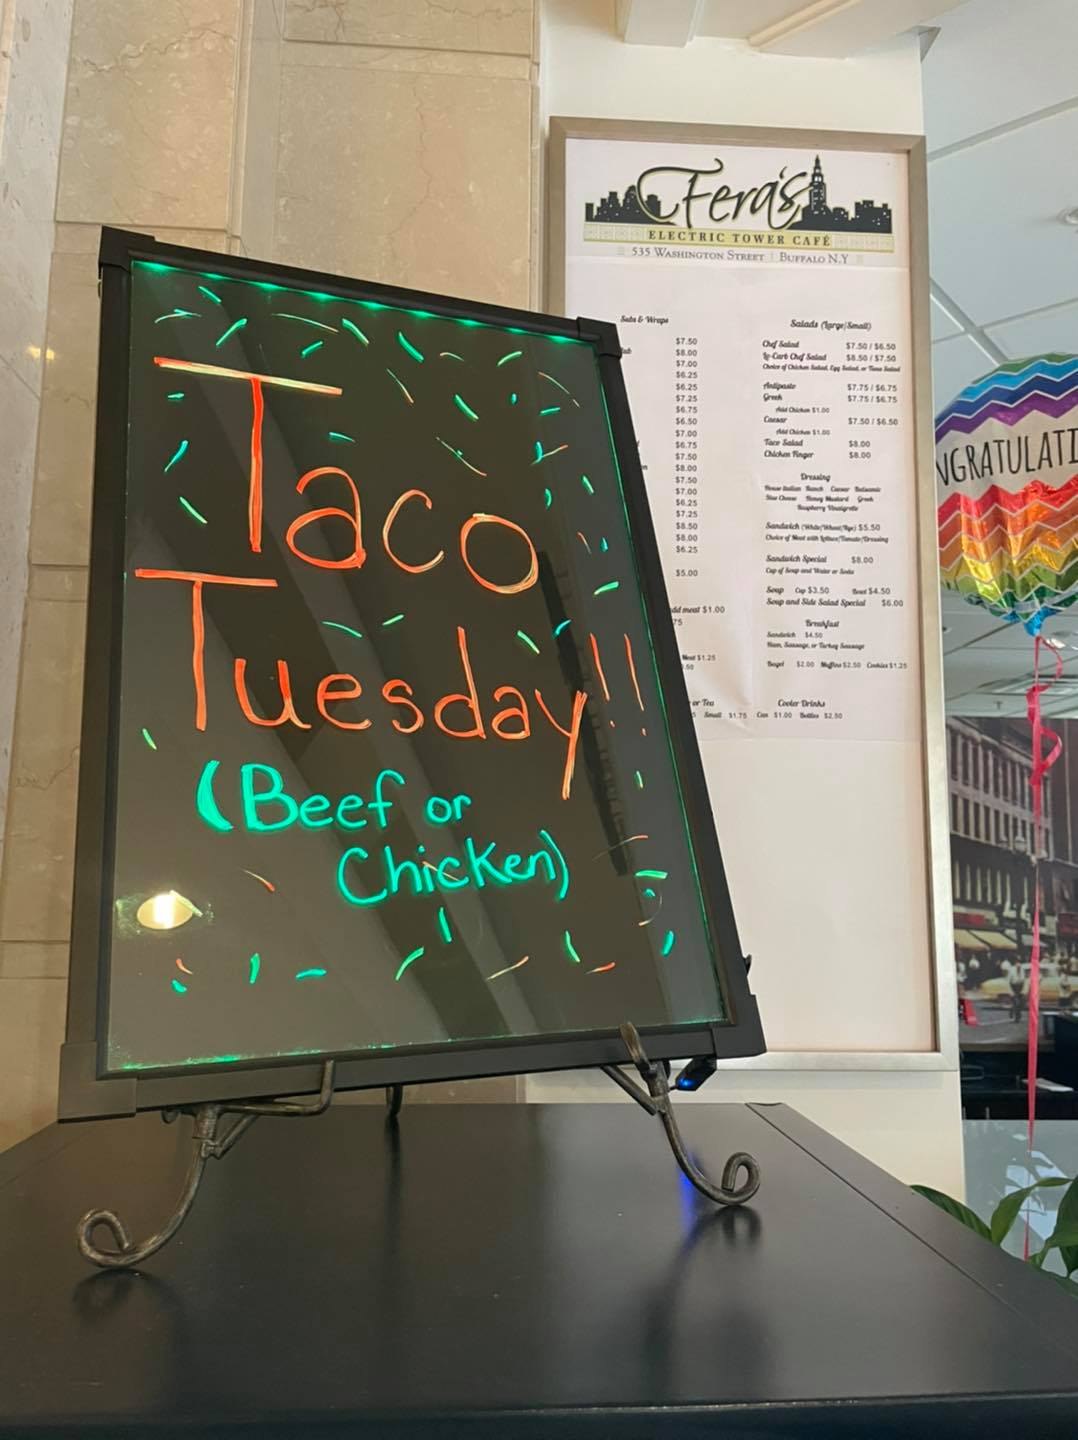 Taco
Tuesday!!
(Beef or
Chicken)
Fera's
ELECTRIC TOWER CAFÉ
535 WASHINGTON STREET | BUFFALO N.Y
Subs & Wraps
$7.50
$8.00
$7.00
$6.25
$6.25
$7.25
$6.75
$6.50
$7.00
$6.75
$7.50
$8.00
$7.50
$7.00
$6.25
$7.25
$8.50
$8.00
$6.25
$5.00
dd meat $1.00
75
Meat $1.25
.50
or Tea
5 Small $1.75
Salads (Large/Small)
Chef Salad $7.50 / $6.50
Lo-Carb Chef Salad $8.50 / $7.50
Choice of Chicken Salad, Egg Salad, or Tuna Salad
Antipasto $7.75 / $6.75
Greek $7.75 / $6.75
Add Chicken $1.00
Caesar $7.50 / $6.50
Add Chicken $1.00
Taco Salad $8.00
Chicken Finger $8.00
Dressing
House Italian Ranch Caesar Balsamic
Blue Cheese Honey Mustard Greek
Raspberry Vinaigrette
Sandwich (White/Wheat/Rye) $5.50
Choice of Meat with Lettuce/Tomato/Dressing
Sandwich Special $8.00
Cup of Soup and Water or Soda
Soup Cup $3.50 Bowl $4.50
Soup and Side Salad Special $6.00
Breakfast
Sandwich $4.50
Ham, Sausage, or Turkey Sausage
Bagel $2.00 Muffins $2.50 Cookies $1.25
Cooler Drinks
Can $1.00 Bottles $2.50
NGRATULATI